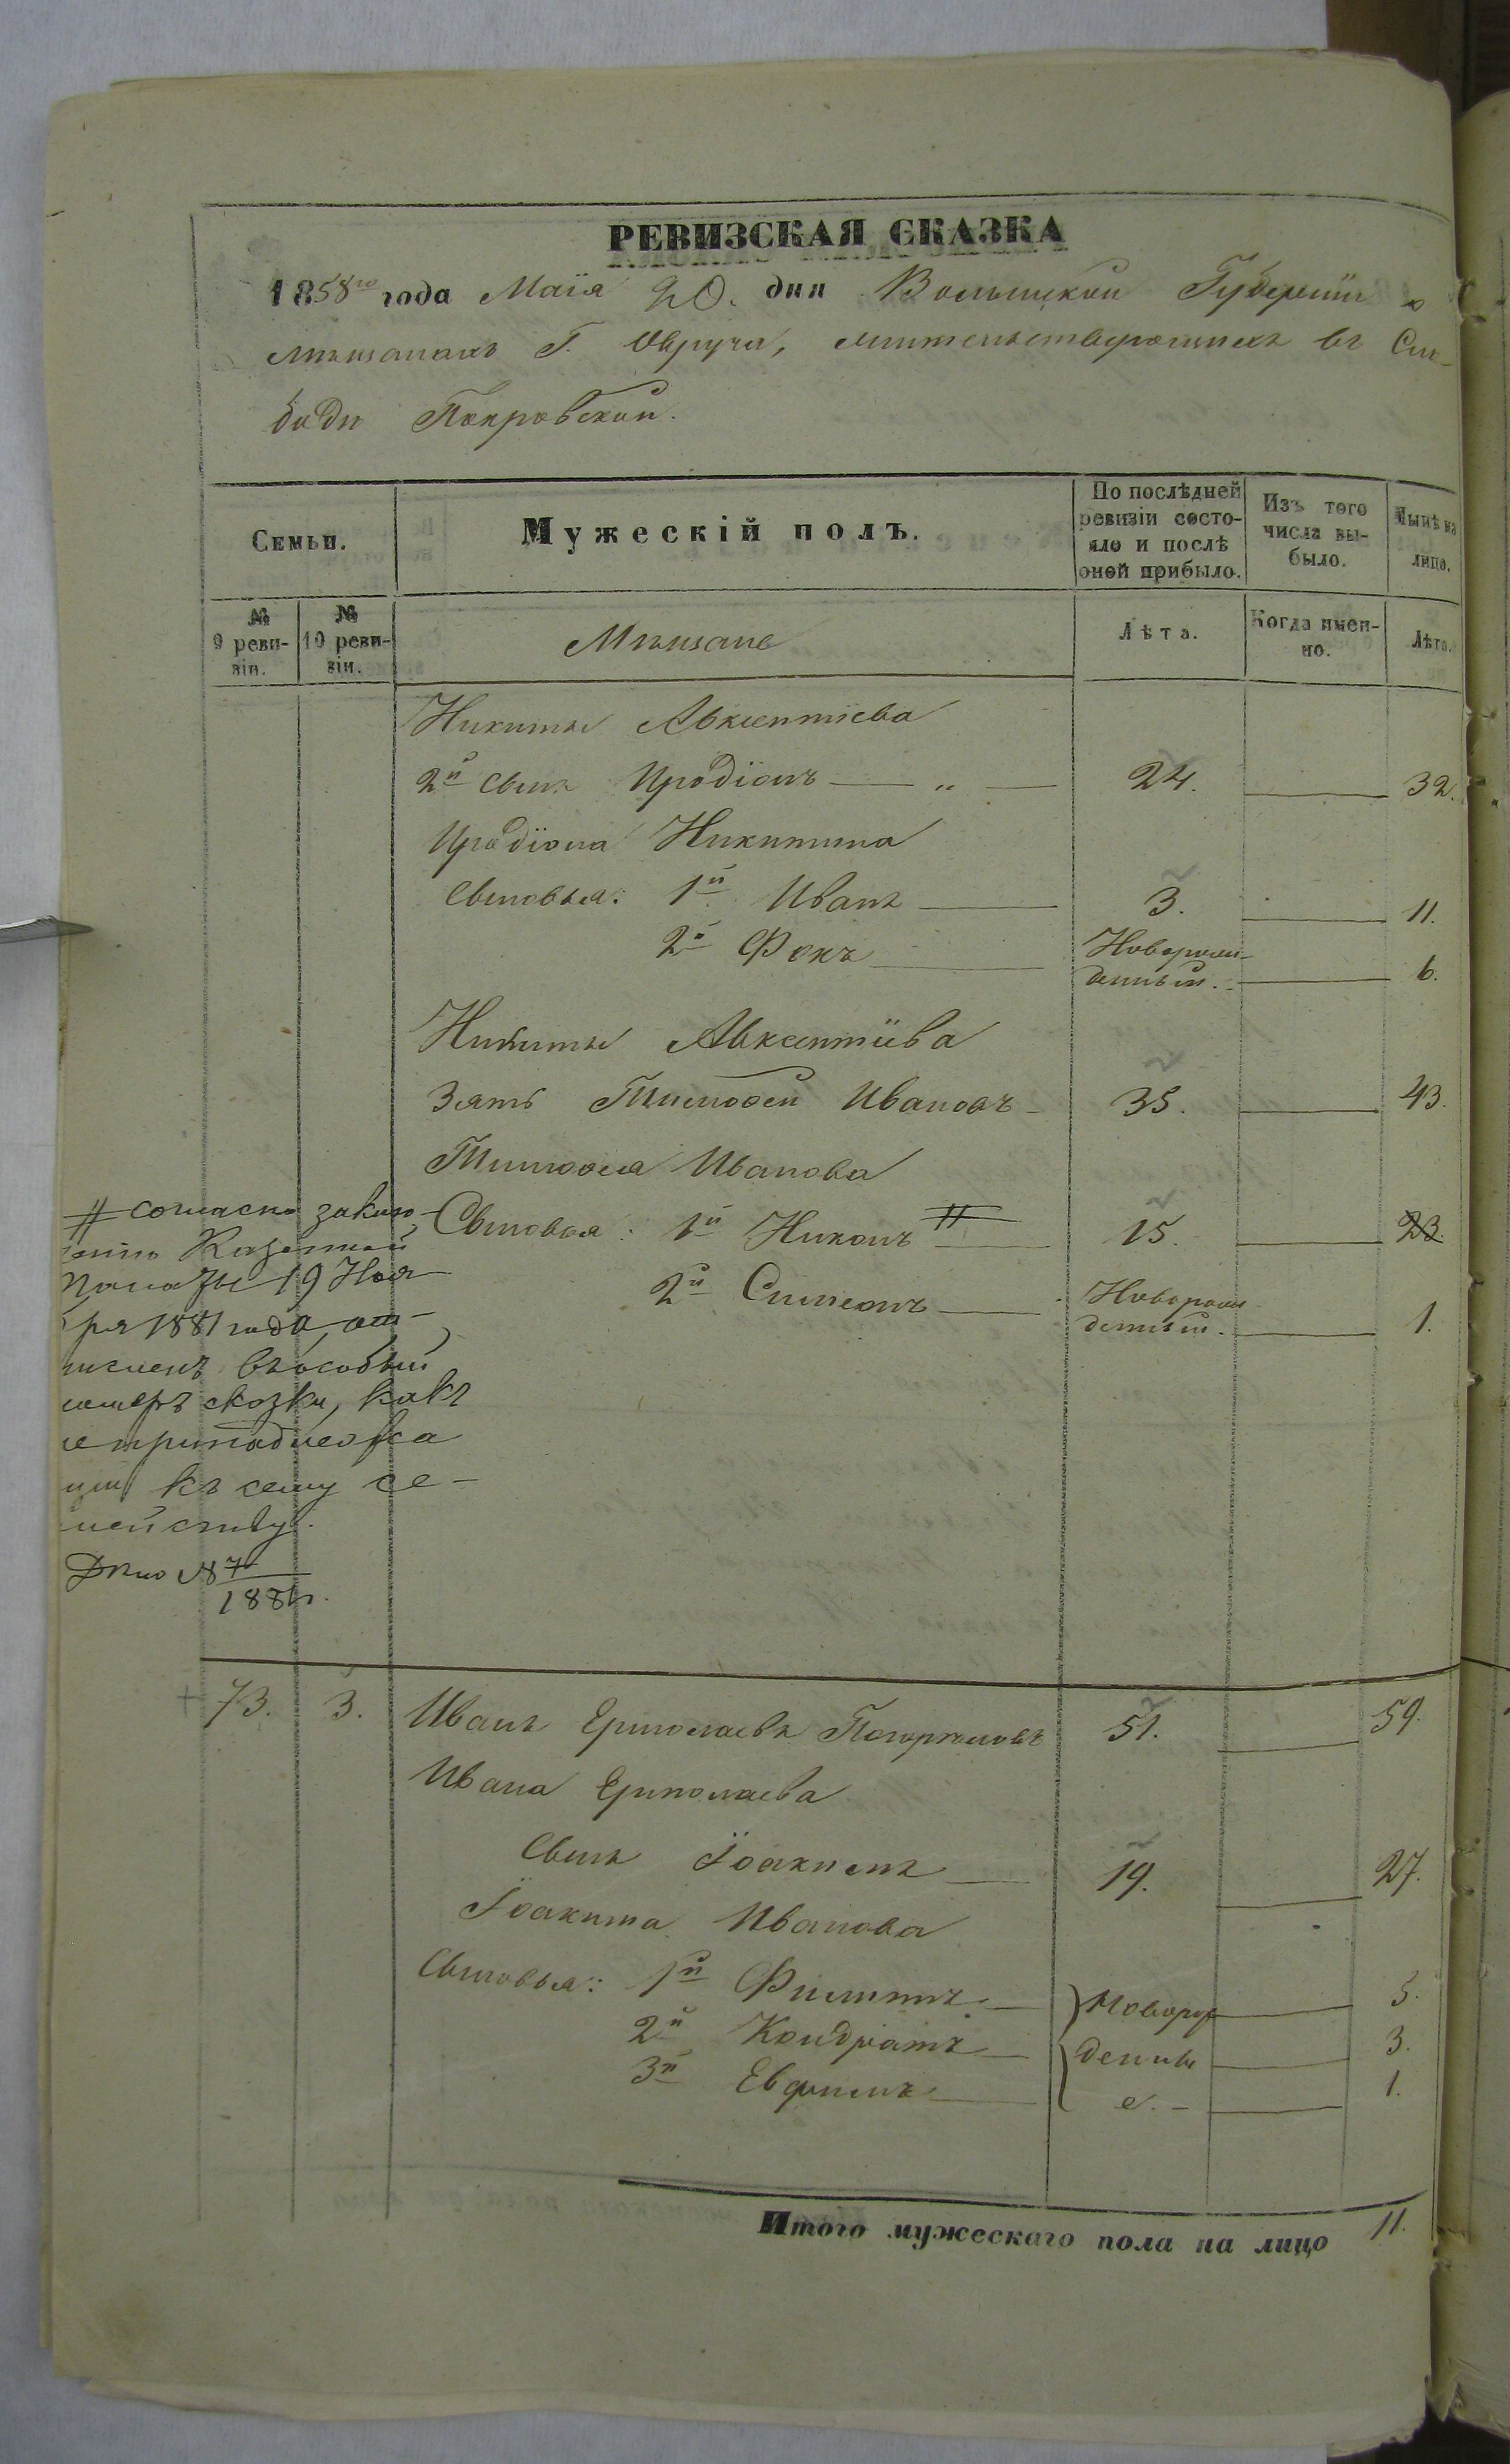 РЕВИЗСКАЯ СКАЗКА
1858го года Маія 20. дня Волынской Губерніи о
мѣщанахъ Г. Овруча, жительствующихъ въ Сло-
бодѣ Покровской.
Семьи.
Мужескій полъ.
По послѣдней
ревизіи состо-
яло и послѣ
оной прибыло.
Изъ того
числа вы-
было.
Нынѣ на
лицо.
№
9 реви-
зіи.
№
10 реви-
зіи.
Мѣщане
Лѣта.
Когда имен-
но.
Лѣта.
Никиты Авксентіева
2й сынъ Иродіонъ — „ — 24. 32.
Иродіона Никитина
Сыновья: 1й Иванъ 3. 11.
2й Фокъ Новорож-
денный. 6.
Никиты Авксентіева
Зять Тимофей Ивановъ 35. 43.
Тимофея Иванова
Сыновья: 1й Никонъ # 15. 23.
2й Симеонъ Новорож
денный. 1.
# согласно заклю-
ченію Казенной
Палаты 19 Нояб
бря 1881 года, от-
численъ въ особый
номеръ сказки, какъ
не принадлежа
щій къ сему се-
мейству.
Дѣло № 7
1881 г.
73. 3. Иванъ Ермолаевъ 51. 59.
Ивана Ермолаева
Сынъ Іоакимъ 19. 27.
Іоакима Иванова
Сыновья: 1й Филиппъ Оворож 5.
2й Кондратъ денны 3.
3й Евфимъ е. 1.
Итого мужескаго пола на лицо 11.